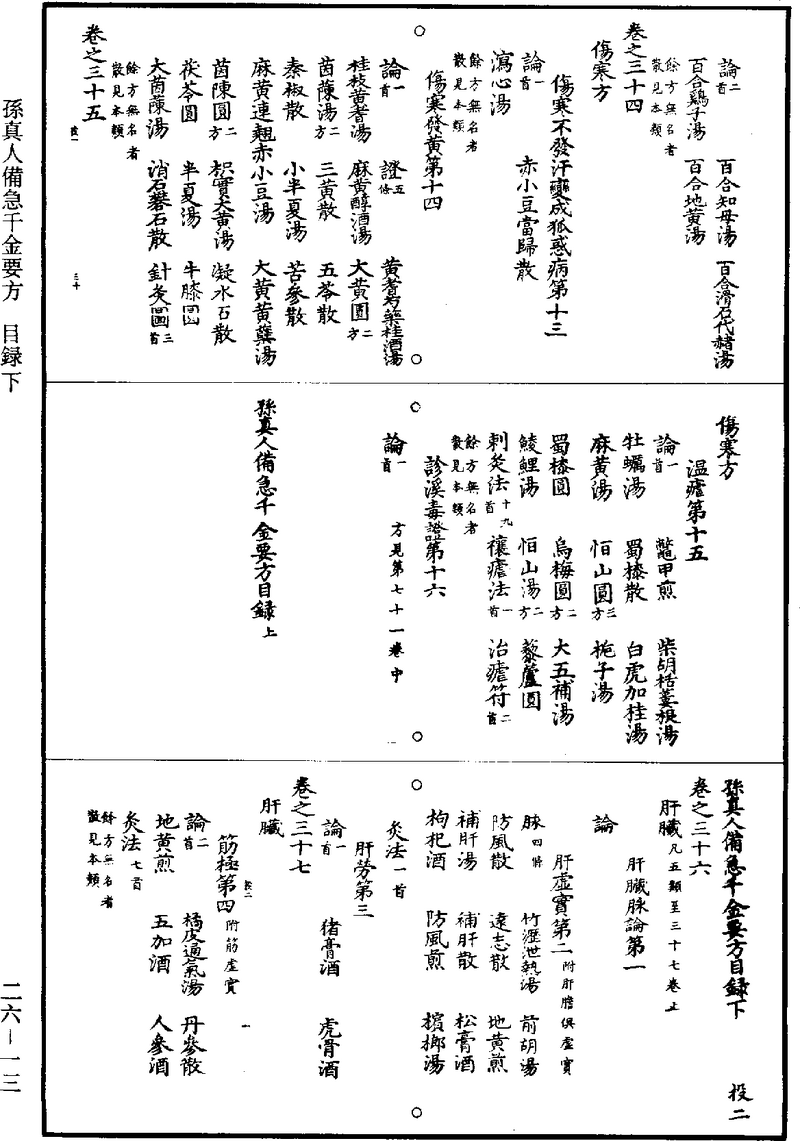 孫真人備急千金要方　目録下
二六—一三
論二首　百合知母湯　百合滑石代赭湯
百合鷄子湯　百合地黄湯
餘方無名者散見本類
卷之三十四
傷寒方
傷寒不發汗變成狐惑病第十三
論一首　赤小豆當歸散
瀉心湯
餘方無名者散見本類
傷寒發黄第十四
論一首　證五條　黄蓍芍藥桂酒湯
桂枝黄耆湯　麻黄醇酒湯　大黄圓二方
茵蔯湯二方　三黄散　五苓散
秦椒散　小半夏湯　苦參散
麻黄連翹赤小豆湯　大黄黄蘗湯
茵陳圓二方　枳實大黄湯　凝水石散
茯苓圓　半夏湯　牛膝圓
大茵蔯湯　消石礬石散　針灸圖三首
餘方無名者散見本類
卷之三十五
傷寒方
温瘧第十五
論一首　鼈甲煎　柴胡栝蔞根湯
牡蠣湯　蜀㯃散　白虎加桂湯
麻黄湯　恒山圓三方　梔子湯
蜀㯃圓　烏梅圓二方　大五補湯
鯪鯉湯　恒山湯二方　藜蘆圓
刺灸法十九首　禳瘧法一首　治瘧符二首
餘方無名者散見本類
診溪毒證第十六
論一首　方見第七十一卷中
孫真人備急千金要方目録上
孫真人備急千金要方目録下　投二
卷之三十六
肝臟凡五類至三十七卷上
肝臟脉論第一
論
肝虚實第二附肝膽俱虚實
脉四條　竹瀝泄熱湯　前胡湯
防風散　遠志散　地黄煎
補肝湯　補肝散　松膏酒
枸杞酒　防風煎　檳榔湯
灸法一首
肝勞第三
論一首　猪膏酒　虎骨酒
卷之三十七
肝臟
筋極第四附筋虚實
論二首　橘皮通氣湯　丹參散
地黄煎　五加酒　人參酒
灸法七首
餘方無名者散見本類